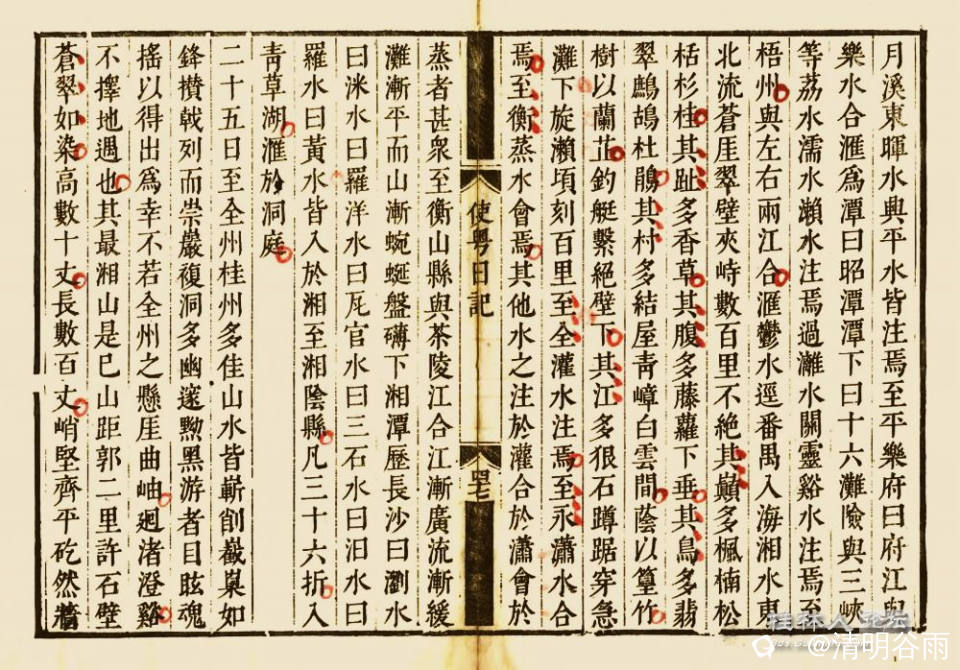 月溪東暉水與平水皆注焉至平樂府曰府江與
樂水合滙爲潭曰昭潭潭下曰十六灘險與三峽
等荔水濡水瀨水注焉過灕水關靈谿水注焉至
梧州與左右兩江合滙鬱水逕番禺入海湘水東
北流蒼厓翠壁夾峙數百里不絕其巔多楓楠松
栝杉桂其趾多香草其腹多藤蘿下垂其鳥多翡
翠鷓鴣杜鵑其村多結屋靑嶂白雲間蔭以篁竹
樹以蘭芷釣艇繫絕壁下其江多狠石蹲踞穿急
灘下旋瀨頃刻百里至全灌水注焉至永瀟水合
焉至衡蒸水會焉其他水之注於灌合於瀟會於
使粤日記
四七
蒸者甚衆至衡山縣與茶陵江合江漸廣流漸緩
灘漸平而山漸蜿蜒盤礴下湘潭歷長沙曰瀏水
曰洣水曰羅洋水曰瓦官水曰三石水曰汨水曰
羅水曰黃水皆入於湘至湘陰縣凡三十六折入
靑草湖滙於洞庭
二十五日至全州桂州多佳山水皆嶄削巀嵲如
鋒攅戟列而崇巖複洞多幽邃黝黑游者目眩魂
搖以得出爲幸不若全州之懸厓曲岫迴渚澄谿
不擇地遇也其最湘山是已山距郭二里許石壁
蒼翠如染高數十丈長數百丈峭堅齊平矻然牆
桂林人论坛
@清明谷雨